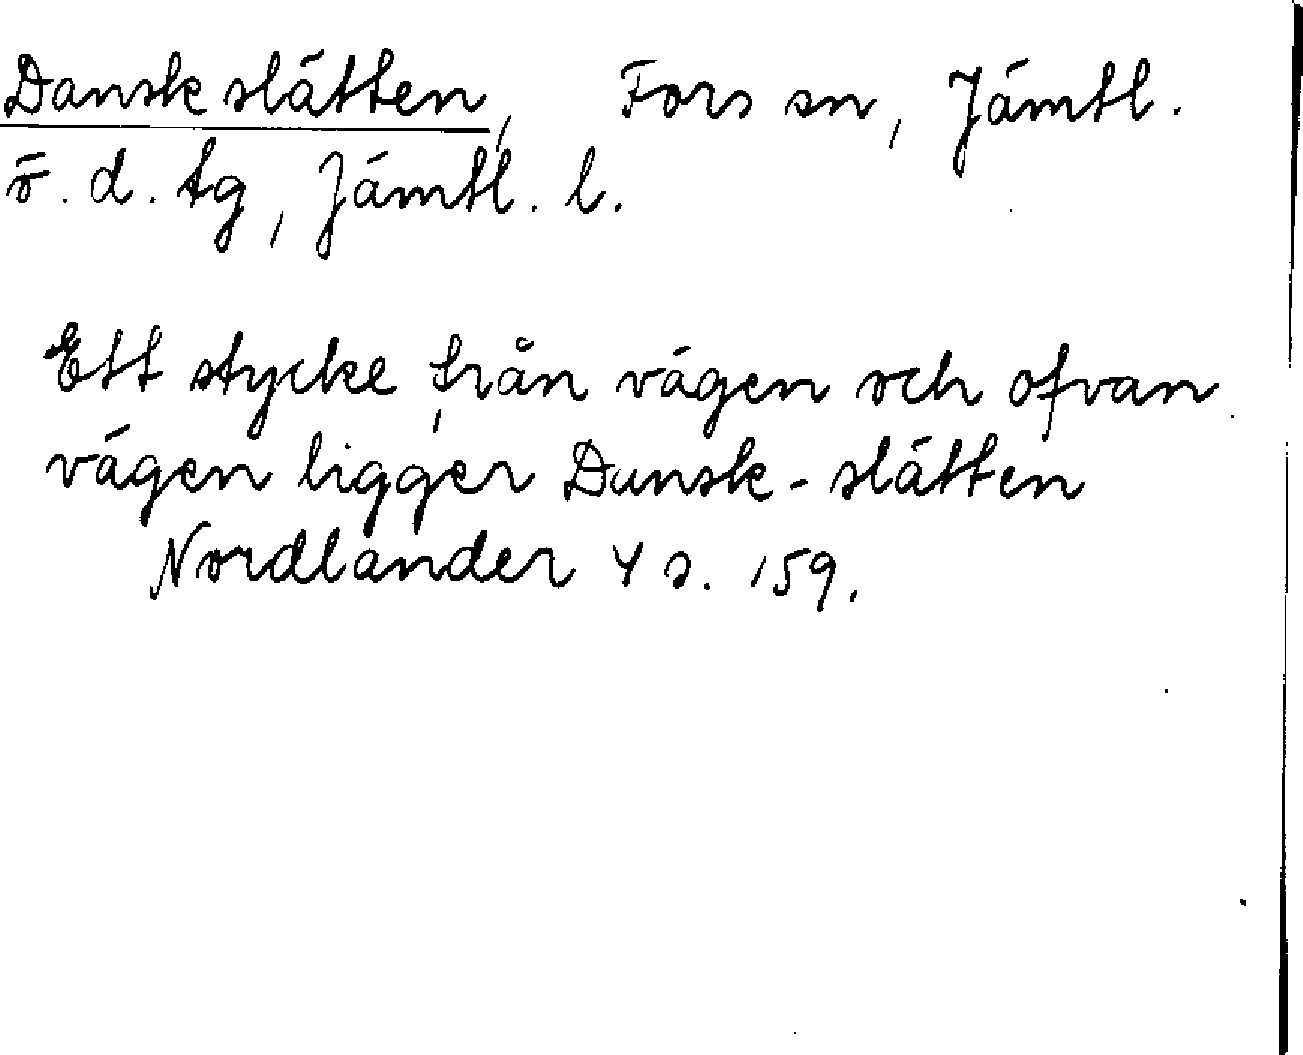 Danskslätten, Fors sn, Jämtl.
ö. d. tg, Jämtl. l.
Ett stycke från vägen och ofvan
vägen ligger Dunsk-slätten
Nordlander 4 s. 159.